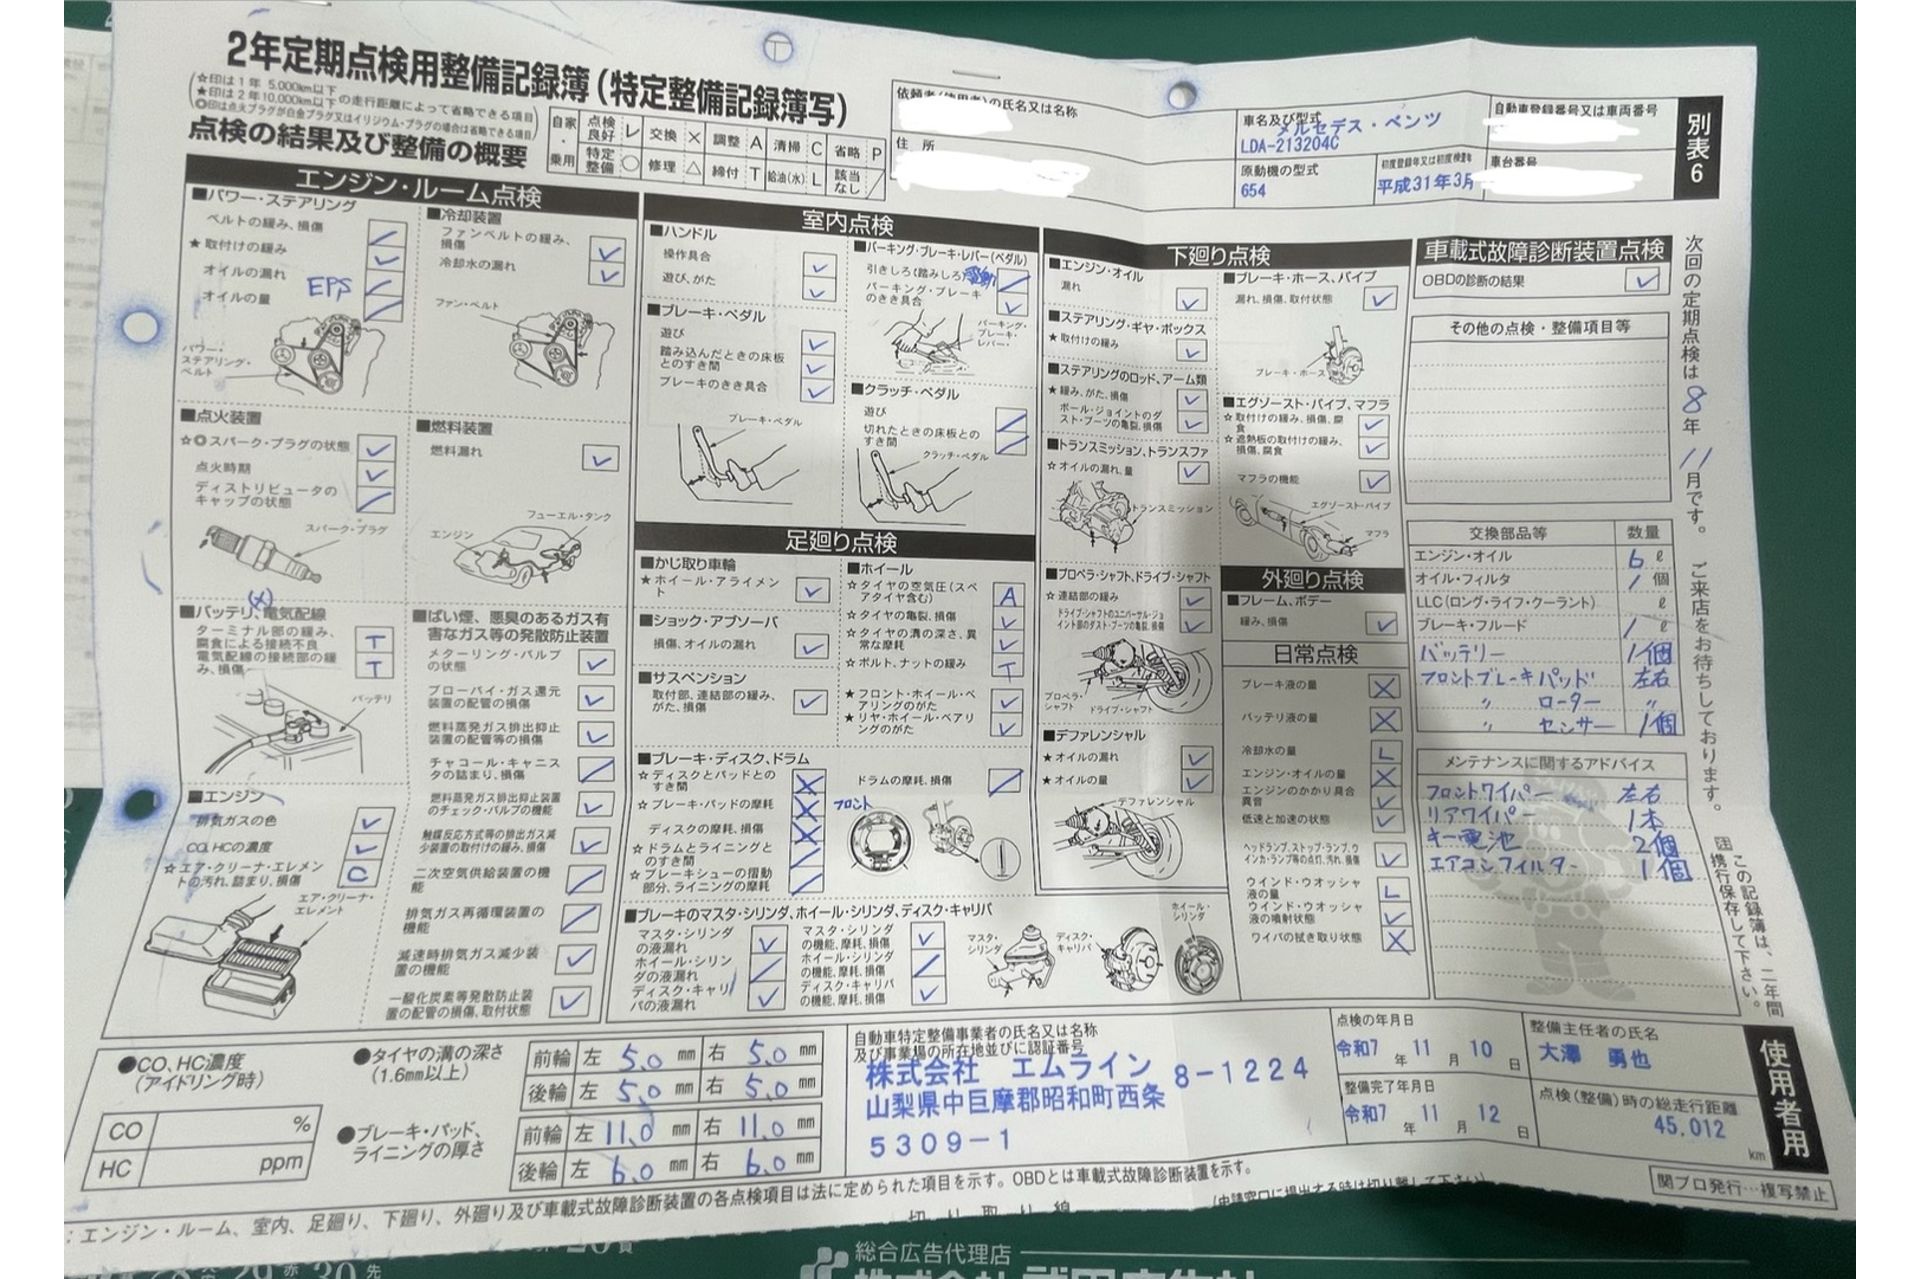 2年定期点検用整備記録簿(特定整備記録簿写)
☆印は1年 5,000km以下
★印は2年10,000km以下の走行距離によって省略できる項目
◎印は点火プラグが白金プラグ又はイリジウム・プラグの場合は省略できる項目
点検の結果及び整備の概要
自家・乗用
点検良好 レ 交換 × 調整 A 清掃 C 省略 P
特定整備 ○ 修理 △ 締付 T 給油(水) L 該当なし /
依頼者(使用者)の氏名又は名称
住所
車名及び型式
メルセデス・ベンツ
LDA-213204C
原動機の型式
654
自動車登録番号又は車両番号
初度登録年又は初度検査年
平成31年3月
車台番号
別表6
エンジン・ルーム点検
■パワー・ステアリング
ベルトの緩み、損傷
★取付けの緩み
オイルの漏れ
オイルの量
EPS
パワー・ステアリング・ベルト
■冷却装置
ファンベルトの緩み、損傷
冷却水の漏れ
ファン・ベルト
■点火装置
☆◎スパーク・プラグの状態
点火時期
ディストリビュータのキャップの状態
スパーク・プラグ
■燃料装置
燃料漏れ
フューエル・タンク
エンジン
(×)
■バッテリ、電気配線
ターミナル部の緩み、腐食による接続不良 T
電気配線の接続部の緩み、損傷 T
バッテリ
■ばい煙、悪臭のあるガス有害なガス等の発散防止装置
メターリング・バルブの状態
ブローバイ・ガス還元装置の配管の損傷
燃料蒸発ガス排出抑止装置の配管等の損傷
チャコール・キャニスタの詰まり、損傷
燃料蒸発ガス排出抑止装置のチェック・バルブの機能
触媒反応方式等の排出ガス減少装置の取付けの緩み、損傷
二次空気供給装置の機能
排気ガス再循環装置の機能
減速時排気ガス減少装置の機能
一酸化炭素等発散防止装置の配管の損傷、取付状態
■エンジン
排気ガスの色
CO、HCの濃度
☆エア・クリーナ・エレメントの汚れ、詰まり、損傷 C
エア・クリーナ・エレメント
室内点検
■ハンドル
操作具合
遊び、がた
■ブレーキ・ペダル
遊び
踏み込んだときの床板とのすき間
ブレーキのきき具合
ブレーキ・ペダル
■パーキング・ブレーキ・レバー(ペダル)
引きしろ(踏みしろ) 電動
パーキング・ブレーキのきき具合
パーキング・ブレーキ・レバー・
■クラッチ・ペダル
遊び
切れたときの床板とのすき間
クラッチ・ペダル
足廻り点検
■かじ取り車輪
★ホイール・アライメント
■ショック・アブソーバ
損傷、オイルの漏れ
■サスペンション
取付部、連結部の緩み、がた、損傷
■ホイール
☆タイヤの空気圧(スペアタイヤ含む) A
☆タイヤの亀裂、損傷
☆タイヤの溝の深さ、異常な摩耗
☆ボルト、ナットの緩み T
★フロント・ホイール・ベアリングのがた
★リヤ・ホイール・ベアリングのがた
■ブレーキ・ディスク、ドラム
☆ディスクとパッドとのすき間 ×
☆ブレーキ・パッドの摩耗 × フロント
ディスクの摩耗、損傷 ×
☆ドラムとライニングとのすき間
☆ブレーキシューの摺動部分、ライニングの摩耗
ドラムの摩耗、損傷
■ブレーキのマスタ・シリンダ、ホイール・シリンダ、ディスク・キャリパ
マスタ・シリンダの液漏れ
ホイール・シリンダの液漏れ
ディスク・キャリパの液漏れ
マスタ・シリンダの機能、摩耗、損傷
ホイール・シリンダの機能、摩耗、損傷
ディスク・キャリパの機能、摩耗、損傷
マスタ・シリンダ
ディスク・キャリパ
ホイール・シリンダ
下廻り点検
■エンジン・オイル
漏れ
■ステアリング・ギヤ・ボックス
★取付けの緩み
■ステアリングのロッド、アーム類
★緩み、がた、損傷
ボール・ジョイントのダスト・ブーツの亀裂、損傷
■トランスミッション、トランスファ
☆オイルの漏れ、量
トランスミッション
■プロペラ・シャフト、ドライブ・シャフト
☆連結部の緩み
ドライブ・シャフトのユニバーサル・ジョイント部のダスト・ブーツの亀裂、損傷
プロペラ・シャフト
ドライブ・シャフト
■デファレンシャル
★オイルの漏れ
★オイルの量
デファレンシャル
■ブレーキ・ホース、パイプ
漏れ、損傷、取付状態
ブレーキ・ホース
■エグゾースト・パイプ、マフラ
☆取付けの緩み、損傷、腐食
☆遮熱板の取付けの緩み、損傷、腐食
マフラの機能
エグゾースト・パイプ
マフラ
外廻り点検
■フレーム、ボデー
緩み、損傷
日常点検
ブレーキ液の量 ×
バッテリ液の量 ×
冷却水の量 L
エンジン・オイルの量 ×
エンジンのかかり具合異音
低速と加速の状態
ヘッドランプ、ストップ・ランプ、ウインカ・ランプ等の点灯、汚れ、損傷
ウインド・ウオッシャ液の量 L
ウインド・ウオッシャ液の噴射状態
ワイパの拭き取り状態 ×
車載式故障診断装置点検
OBDの診断の結果
その他の点検・整備項目等
交換部品等 数量
エンジン・オイル 6 ℓ
オイル・フィルタ 1 個
LLC(ロング・ライフ・クーラント) ℓ
ブレーキ・フルード 1 ℓ
バッテリー 1個
フロントブレーキパッド 左右
〃 ローター 〃
〃 センサー 1個
メンテナンスに関するアドバイス
フロントワイパー 左右
リアワイパー 1本
キー電池 2個
エアコンフィルター 1個
次回の定期点検は8年11月です。 ご来店をお待ちしております。
注 この記録簿は、二年間携行保存して下さい。
●CO、HC濃度
(アイドリング時)
CO %
HC ppm
●タイヤの溝の深さ
(1.6mm以上)
前輪 左 5.0 mm 右 5.0 mm
後輪 左 5.0 mm 右 5.0 mm
●ブレーキ・パッド、ライニングの厚さ
前輪 左 11.0 mm 右 11.0 mm
後輪 左 6.0 mm 右 6.0 mm
自動車特定整備事業者の氏名又は名称
及び事業場の所在地並びに認証番号
株式会社 エムライン 8-1224
山梨県中巨摩郡昭和町西条
5309-1
点検の年月日
令和7年11月10日
整備完了年月日
令和7年11月12日
整備主任者の氏名
大澤 勇也
点検(整備)時の総走行距離
45,012 km
使用者用
関ブロ発行…複写禁止
:エンジン・ルーム、室内、足廻り、下廻り、外廻り及び車載式故障診断装置の各点検項目は法に定められた項目を示す。OBDとは車載式故障診断装置を示す。
切り取り線
(申請窓口に提出する時は切り離して下さい)
総合広告代理店